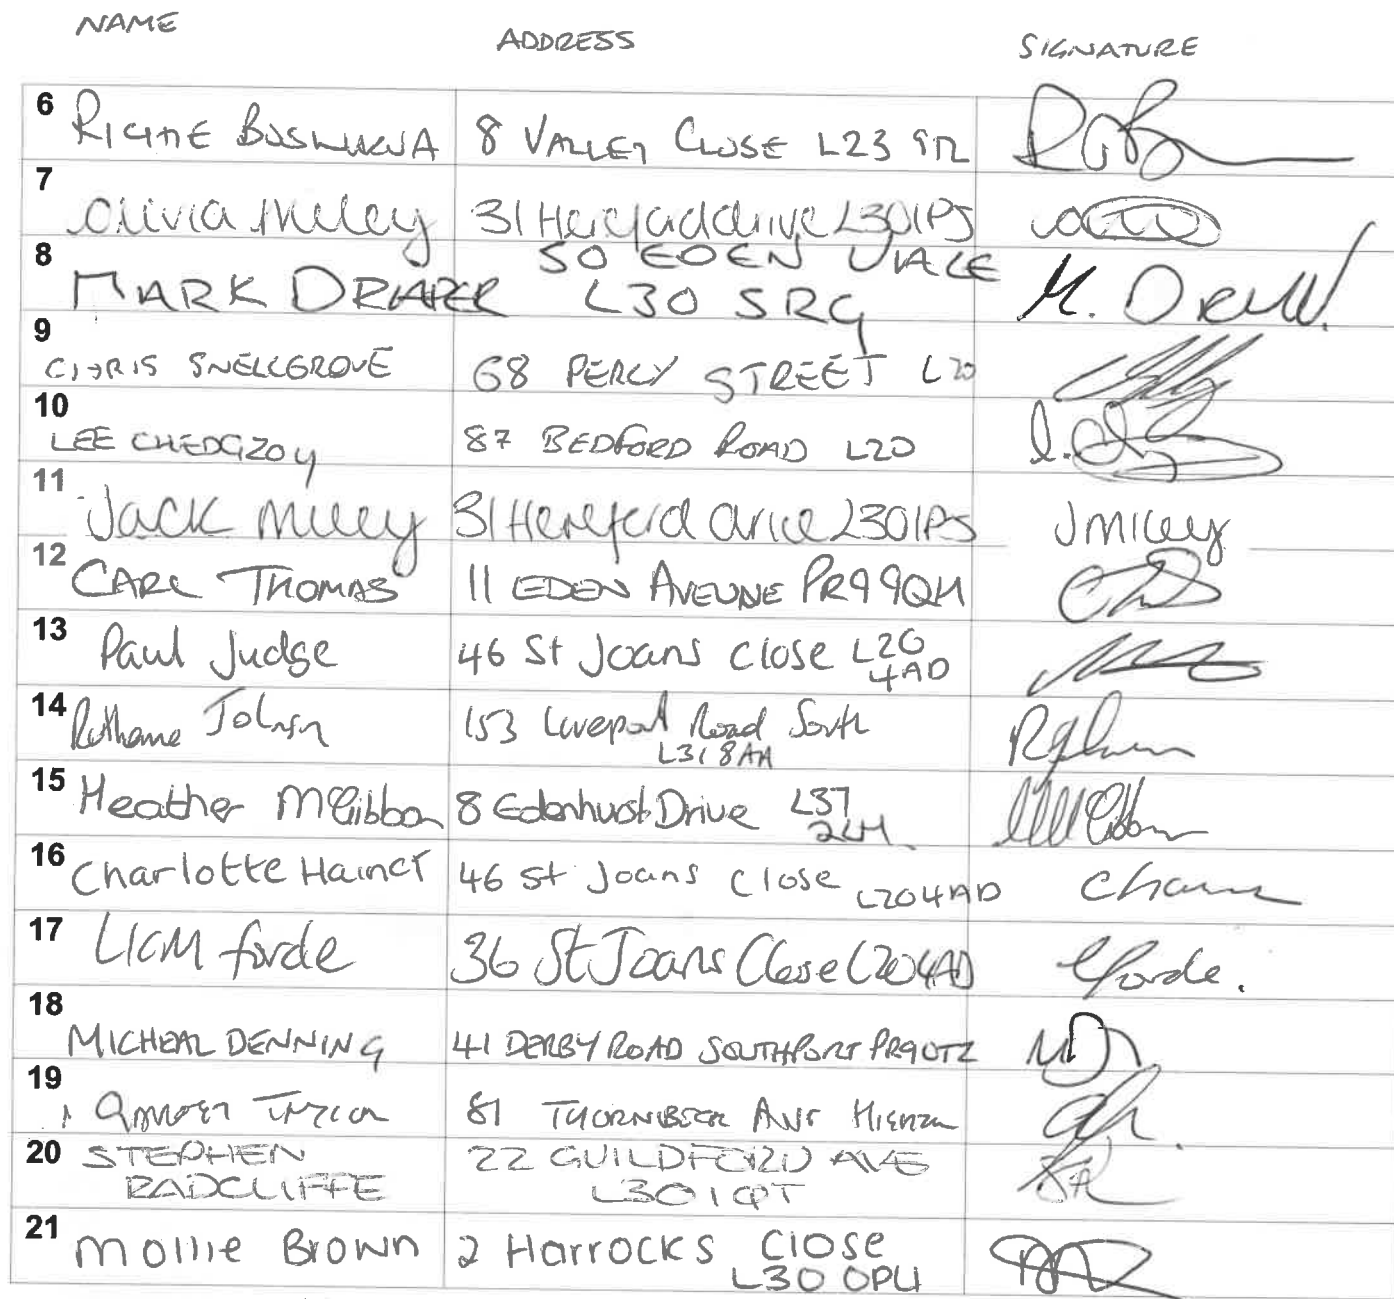 NAME ADDRESS SIGNATURE
6 RICHIE 8 VALLEY CLOSE L23
7 Olivia Miley 31 Hereford drive L30 1PS
50 EDEN VALE
8 MARK DRAPER L30 5RG M.
9 CHRIS SNELLGROVE 68 PERCY STREET L20
10 LEE CHEDGZOY 87 BEDFORD ROAD L20
11 Jack Miley 31 Hereford drive L30 1PS J Miley
12 CARL THOMAS 11 EDEN AVEUNE PR9 9QH
13 Paul Judge 46 St Joans Close L20
4AD
14 Johnson 153 Liverpool Road South
L31 8AA
15 Heather McGibbon 8 Edenhurst Drive L37
16 Charlotte 46 St Joans Close L20 4AD
17 Liam forde 36 St Joans Close L20 4AD forde.
18 MICHEAL DENNING 41 DERBY ROAD SOUTHPORT PR9 0TZ
19 81 AVE
20 STEPHEN 22 GUILDFORD AVE
RADCLIFFE L30 1QT
21 Mollie Brown 2 Harrocks Close
L30 0PU